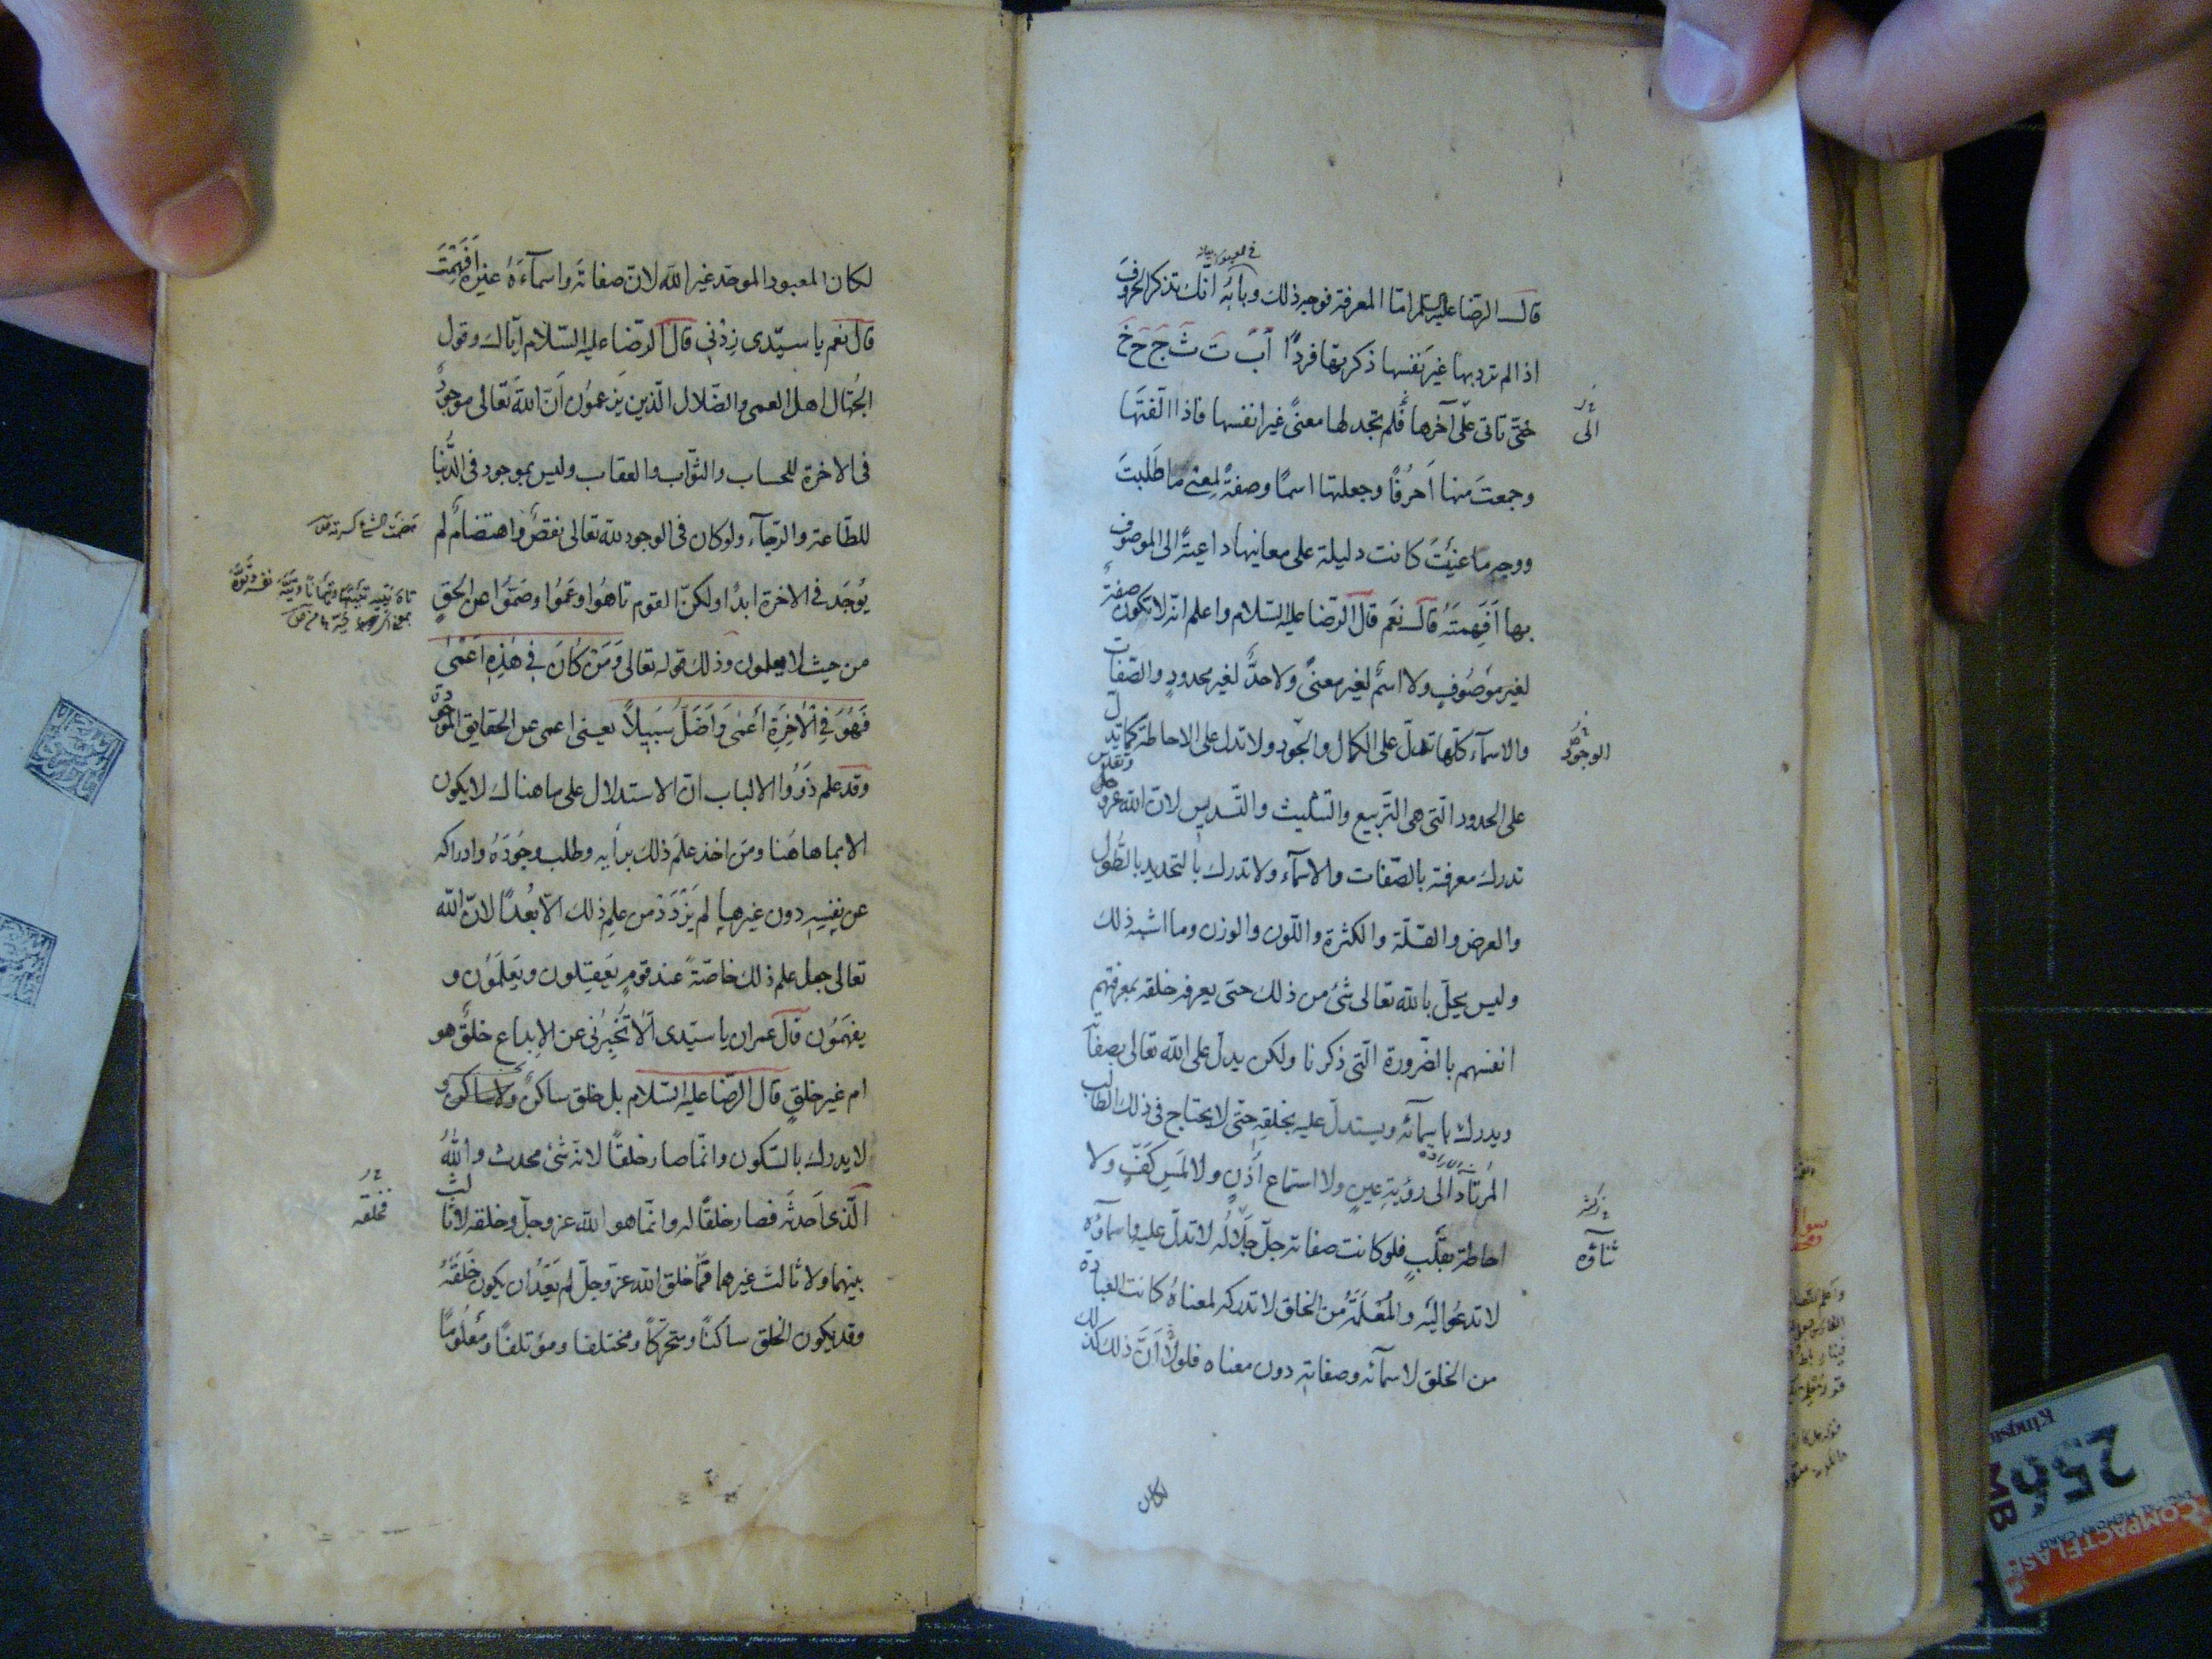 في العيون بيانه
قال الرضا عليه السلم اما المعرفة فوجه ذلك وبابه انك تذكر الحروف
اذا لم ترد بها غير نفسها ذكرتها فردًا ا ب ت ث ج ح خ
حتى تاتى على آخرها فلم تجد لها معنى غير انفسها فاذا الفتها
الى
وجمعت منها احرفًا وجعلتها اسمًا وصفة لمعنى ما طلبت
ووجه ما عنيت كانت دليلة على معانيها داعية الى الموصوف
بها افهمته قال نعم قال الرضا عليه السلام واعلم انه لا تكون صفة
لغير موصوف ولا اسم لغير معنى ولا حد لغير محدود والصفات
والاسمآء كلها تدل على الكمال والجود ولا تدل على الاحاطة كما تدل
الوجود
على الحدود التى هى التربيع والتثليث والتسديس لان الله عز وجل وتقدس
تدرك معرفته بالصفات والاسمآء ولا تدرك بالتحديد بالطول
والعرض والقلة والكثرة واللون والوزن وما اشبه ذلك
وليس يحل بالله تعالى شئ من ذلك حتى يعرفه خلقه بمعرفتهم
انفسهم بالضرورة التى ذكرنا ولكن يدل على الله تعالى بصفاته
ويدرك باسمآئه ويستدل عليه بخلقه حتى لا يحتاج فى ذلك الطالب
المرتاد الى رؤية عين ولا استماع اذن ولا لمس كف ولا
احاطة بقلب فلو كانت صفاته جل جلاله لا تدل عليه واسمآؤه
ثناؤه
لا تدعوا اليه والمعلمة من الخلق لا تدركه لمعناه كانت العبادة
من الخلق لاسمآئه وصفاته دون معناه فلولا ان ذلك كذلك
لكان
لكان المعبود الموحد غير الله لان صفاته واسمآءه غيره افهمت
قال نعم يا سيدى زدنى قال الرضا عليه السلام اياك وقول
الجهال اهل العمى والضلال الذين يزعمون ان الله تعالى موجود
فى الاخرة للحساب والثواب والعقاب وليس بموجود فى الدنيا
للطاعة والرجآء ولو كان فى الوجود لله تعالى نقص واهتضام لم
هضمت الشئ كسرته ص
يوجد فى الاخرة ابدا ولكن القوم تاهوا وعموا وصموا عن الحق
من حيث لا يعلمون وذلك قوله تعالى ومن كان في هذه اعمى
فهو في الاخرة أعمى وأضل سبيلاً يعنى اعمى عن الحقايق الموجودة
وقد علم ذووا الالباب ان الاستدلال على ما هناك لا يكون
الا بما هاهنا ومن اخذ علم ذلك برأيه وطلب وجوده وادراكه
عن نفسه دون غيرها لم يزدد من علم ذلك الا بعدًا لان الله
تعالى جعل علم ذلك خاصة عند قوم يعقلون ويعلمون و
يفهمون قال عمران يا سيدى الا تخبرنى عن الابداع خلق هو
ام غير خلق قال الرضا عليه السلام بل خلق ساكن ولا ساكن و
لا يدرك بالسكون وانما صار خلقًا لانه شئ محدث والله
الذى احدثه فصار خلقًا له وانما هو الله عز وجل وخلقه لا ثالث
فخلقه
بينهما ولا ثالث غيرهما فما خلق الله عز وجل لم يعد ان يكون خلقه
وقد يكون الخلق ساكنًا ومتحركًا ومختلفا ومؤتلفًا ومعلومًا
Kingston
256
MB
COMPACTFLASH
MEMORY CARD